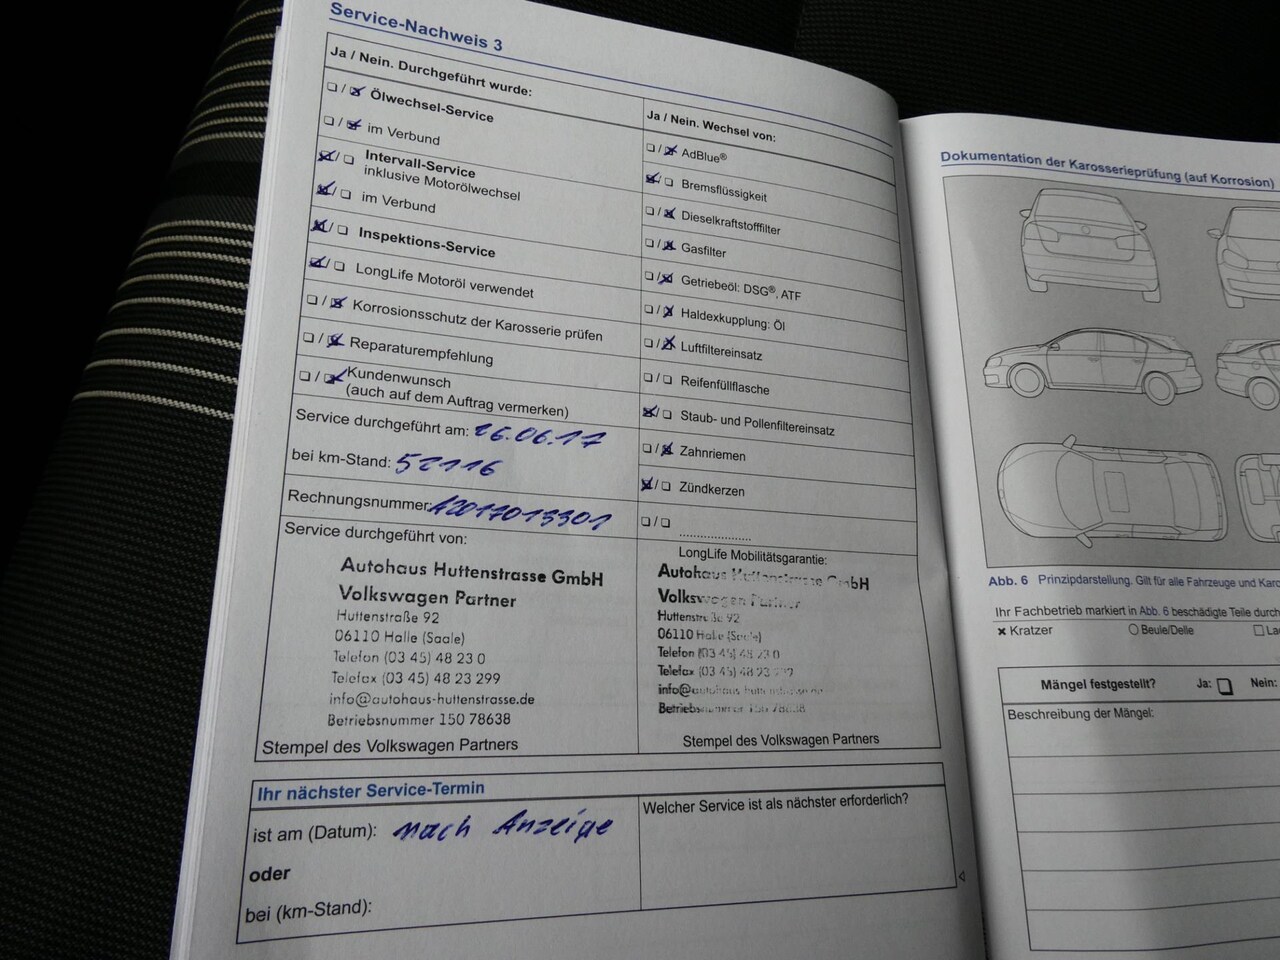 Service-Nachweis 3
Ja / Nein. Durchgeführt wurde:
Ölwechsel-Service
im Verbund
Intervall-Service
inklusive Motorölwechsel
im Verbund
Inspektions-Service
LongLife Motoröl verwendet
Korrosionsschutz der Karosserie prüfen
Reparaturempfehlung
Kundenwunsch
(auch auf dem Auftrag vermerken)
Service durchgeführt am: 26.06.17
bei km-Stand: 52116
Rechnungsnummer: A2017013301
Service durchgeführt von:
Autohaus Huttenstrasse GmbH
Volkswagen Partner
Huttenstraße 92
06110 Halle (Saale)
Telefon (03 45) 48 23 0
Telefax (03 45) 48 23 299
info@autohaus-huttenstrasse.de
Betriebsnummer 150 78638
Stempel des Volkswagen Partners
Ja / Nein. Wechsel von:
AdBlue®
Bremsflüssigkeit
Dieselkraftstofffilter
Gasfilter
Getriebeöl: DSG®, ATF
Haldexkupplung: Öl
Luftfiltereinsatz
Reifenfüllflasche
Staub- und Pollenfiltereinsatz
Zahnriemen
Zündkerzen
LongLife Mobilitätsgarantie:
Autohaus Huttenstrasse GmbH
Volkswagen Partner
Huttenstraße 92
06110 Halle (Saale)
Telefon (03 45) 48 23 0
Telefax (03 45) 48 23 299
info@autohaus-huttenstrasse.de
Betriebsnummer 150 78638
Stempel des Volkswagen Partners
Ihr nächster Service-Termin
ist am (Datum): nach Anzeige
oder
bei (km-Stand):
Welcher Service ist als nächster erforderlich?
Dokumentation der Karosserieprüfung (auf Korrosion)
Abb. 6 Prinzipdarstellung. Gilt für alle Fahrzeuge und Karo
Ihr Fachbetrieb markiert in Abb. 6 beschädigte Teile durch
Kratzer
Beule/Delle
La
Mängel festgestellt? Ja: Nein:
Beschreibung der Mängel: